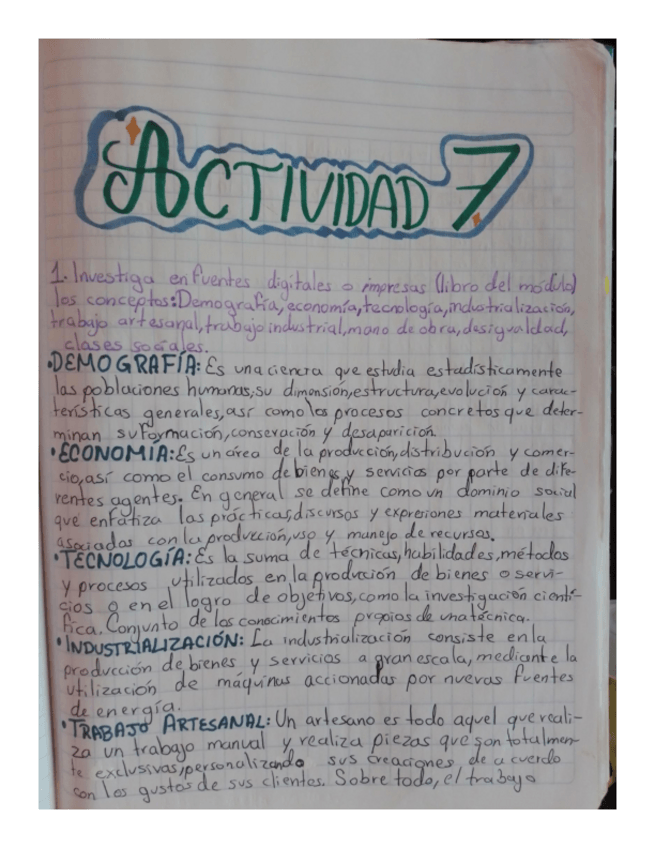 ACTIVIDAD 7
1. Investiga en fuentes digitales o impresas (libro del módulo)
los conceptos: Demografía, economía, tecnología, industrialización,
trabajo artesanal, trabajo industrial, mano de obra, desigualdad,
clases sociales.
•DEMOGRAFÍA: Es una ciencia que estudia estadísticamente
las poblaciones humanas, su dimensión, estructura, evolución y carac-
terísticas generales, así como los procesos concretos que deter-
minan su formación, conservación y desaparición.
•ECONOMÍA: Es un área de la producción, distribución y comer-
cio, así como el consumo de bienes y servicios por parte de dife-
rentes agentes. En general se define como un dominio social
que enfatiza las prácticas, discursos y expresiones materiales
asociadas con la producción, uso y manejo de recursos.
•TECNOLOGÍA: Es la suma de técnicas, habilidades, métodos
y procesos utilizados en la producción de bienes o servi-
cios o en el logro de objetivos, como la investigación cientí-
fica. Conjunto de los conocimientos propios de una técnica.
•INDUSTRIALIZACIÓN: La industrialización consiste en la
producción de bienes y servicios a gran escala, mediante la
utilización de máquinas accionadas por nuevas fuentes
de energía.
•TRABAJO ARTESANAL: Un artesano es todo aquel que reali-
za un trabajo manual y realiza piezas que son totalmen-
te exclusivas, personalizando sus creaciones de acuerdo
con los gustos de sus clientes. Sobre todo, el trabajo